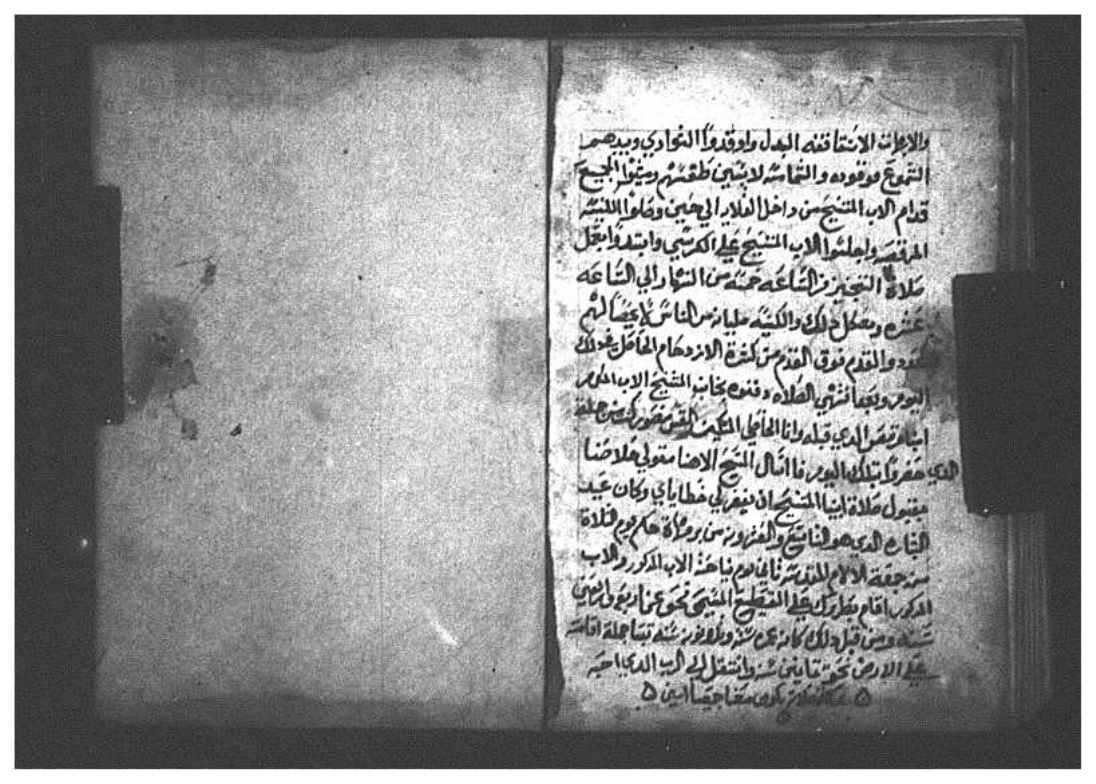 والاباء الاساقفه البدل واوقدوا النواري وبيدهم
الشموع موقوده والشمامسه لابسين طقسهم ومشوا الجميع
قدام الاب المتنيح من داخل القلايه الي حين وصلوا للكنيسه
المرقصيه واجلسوا الاب المتنيح علي الكرسي وابتدوا بعمل
صلاة التجنيز من الساعه خمسه من النهار الي الساعه
عشره وبعد كل ذلك والكنيسه مليانه من الناس لا يحصا لهم
عدد والقدم فوق القدم من كثرة الازدحام الحاصل في ذلك
اليوم وبعد انتهي الصلاه دفنوه بجانب المتنيح الاب المكرم
انبا مرقص الذي قبله وانا الخاطي المسكين القس منصور كنت من جملة
الذي حضروا بتلك اليوم فاسال المسيح الاهنا متولي خلاصنا
بقبول صلاة ابينا المتنيح ان يغفر لي خطاياي وكان عيد
البشاره الذي هو التاسع والعشرون من برمهات حكم يوم الثلاثة
من جمعة الالام المقدسه ثاني يوم نياحة الاب المذكور والاب
المذكور اقام بطريرك علي القطيع المسيحي نحو عن اربعه واربعين
سنه ومن قبل ذلك كان عمره ستة وثلاثون سنه تبقا جملة اقامته
علي الارض نحو ثمانين سنه وانتقل الي الرب الذي احبه
بركة صلاته تكون معنا جميعا امين